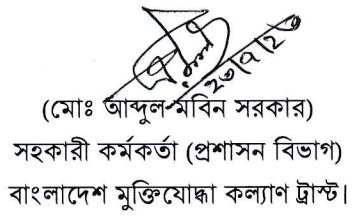 ২৩/৭/২৩
(মোঃ আব্দুল-মবিন সরকার)
সহকারী কর্মকর্তা (প্রশাসন বিভাগ)
বাংলাদেশ মুক্তিযোদ্ধা কল্যাণ ট্রাস্ট।